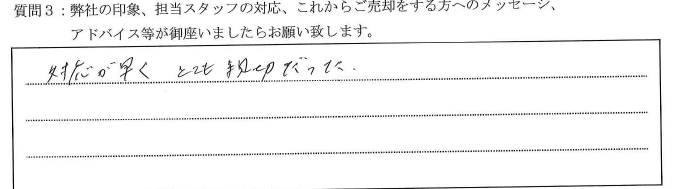 質問3：弊社の印象、担当スタッフの対応、これからご売却をする方へのメッセージ、
アドバイス等が御座いましたらお願い致します。
対応が早く とても親切だった.